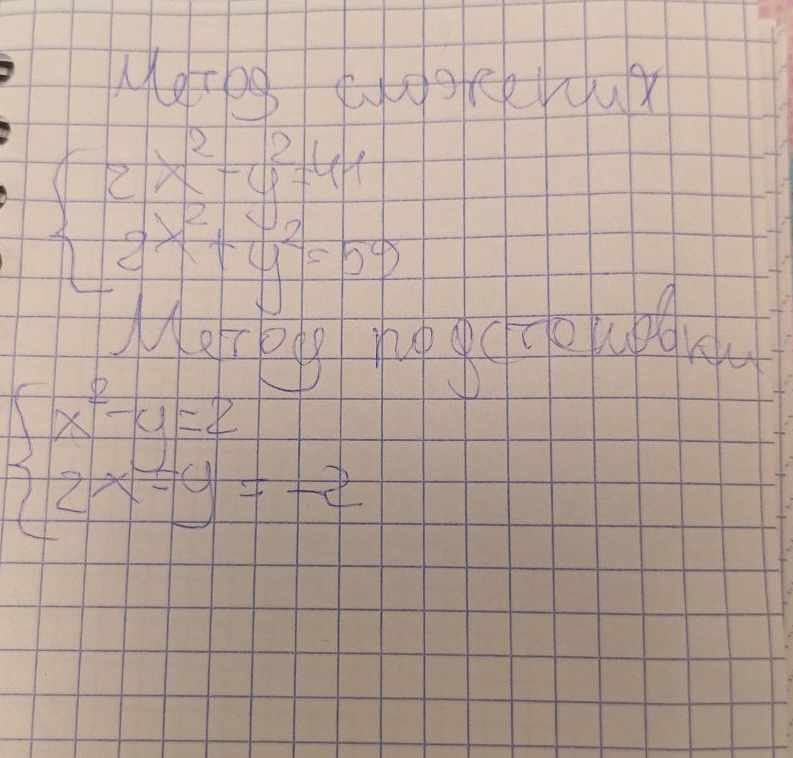 Метод сложения
2x²-y²=41
2x²+y²=59
Метод подстоновки
x²-y=2
2x-y=-2